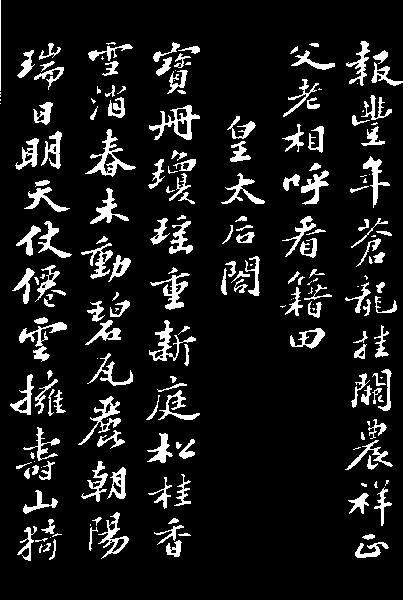 報豐年蒼龍挂闕農祥正
父老相呼看籍田
皇太后閣
寶冊瓊瑤重新庭松桂香
雪消春未動碧瓦麗朝陽
瑞日明天仗僊雲擁壽山猗